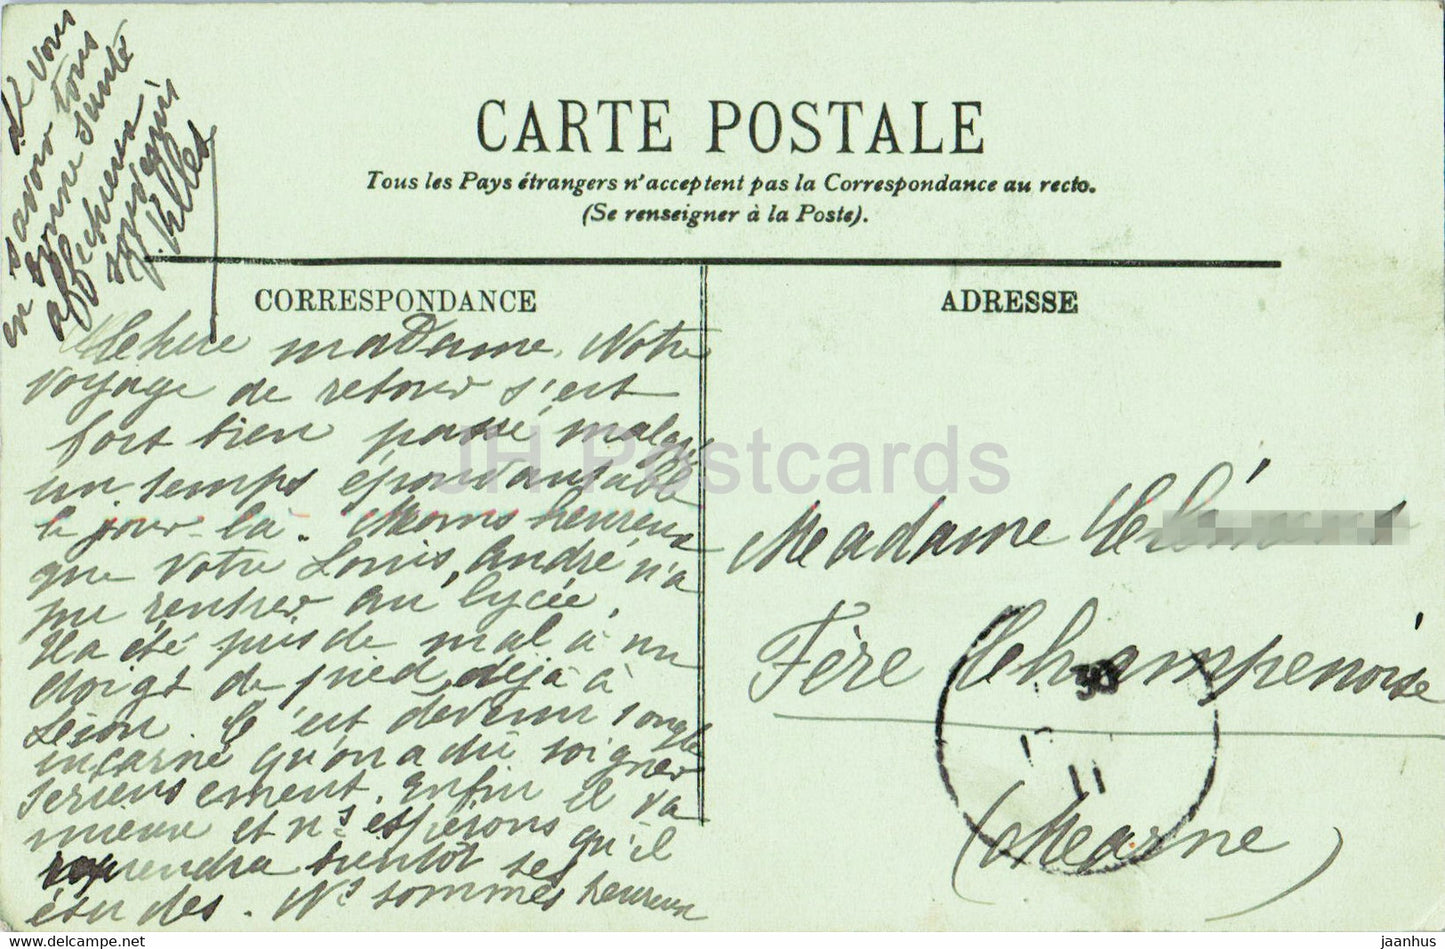 CARTE POSTALE
Tous les Pays étrangers n'acceptent pas la Correspondance au recto.
(Se renseigner à la Poste).
CORRESPONDANCE
Chère madame, Notre
voyage de retour s'est
fort bien passé malgré
un temps épouvantable
ce jour-là. Moins heureux
que votre Louis, André n'a
pu rentrer au lycée,
Il a été pris de mal à un
doigt de pied, déjà à
C'est devenu l'ongle
incarné qu'on a dû soigner
serieusement. Enfin il va
mieux et ns espérons qu'il
reprendra bientôt ses
études. Ns sommes heureux
de vous
savoir tous
en bonne santé
affectueux
souvenirs
ADRESSE
Madame
Fère Champenoise
(Marne)
30
11
JH Postcards
jaanhus.delcampe.net
jaanhus